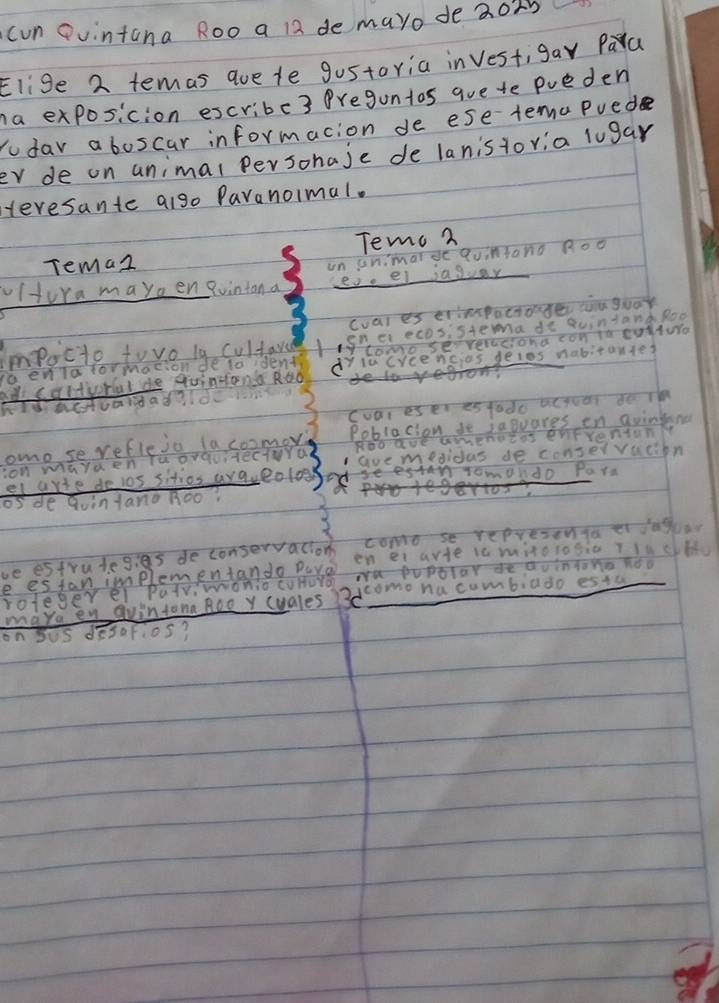 cun Quintana Roo a 12 de mayo de 2025
Elige 2 temas que te gustaria investigar para
na exposicion escribe 3 preguntas que te pueden
yudar abuscar informacion de ese tema puede
er de un animal personaje de lanistoria lugar
teresante algo Paranolmal.
Tema 1
ultura maya en quintana
impacto tuvo la cultura
yo en la formacion de la identi
ad cultural de quintana Roo
actualidad
omo se refleja la cosmov
ion maya en la arquitectura
el arte de los sitios arqueolog
os de quintana Roo?
ue estrategias de conservacion
e estan implementando para
roteger el patrimonio cultura
maya en quintana Roo y cuales
on sus desafios?
Tema 2
un animal de quintana Roo
el jaguar
1 cual es el impacto del jaguar
en el ecosistema de Quintana Roo
y como se relaciona con la cultura
y la creencias de los habitantes
de la region?
cual es el estado actual de la
Poblacion de jaguares en quintana
Roo que amenazas enfrentan y
que medidas de conservacion
2 se estan tomando para
como se representa el jaguar
en el arte la mitologia y la cultu
ra pupolar de quintana Roo
3 como ha cambiado esta